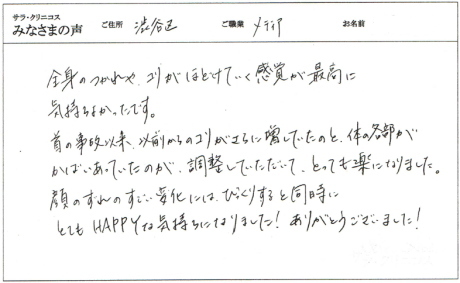 サラ・クリニコス
みなさまの声 ご住所 渋谷区 ご職業 メディア お名前
全身のつかれや、コリがほどけていく感覚が最高に
気持ちよかったです。
首の事故以来、以前からのコリがさらに増していたのと、体の各部が
かばいあっていたのが、調整していただいて、とっても楽になりました。
顔のずれのすごい変化には、びっくりすると同時に
とても HAPPYな気持ちになりました! ありがとうございました!